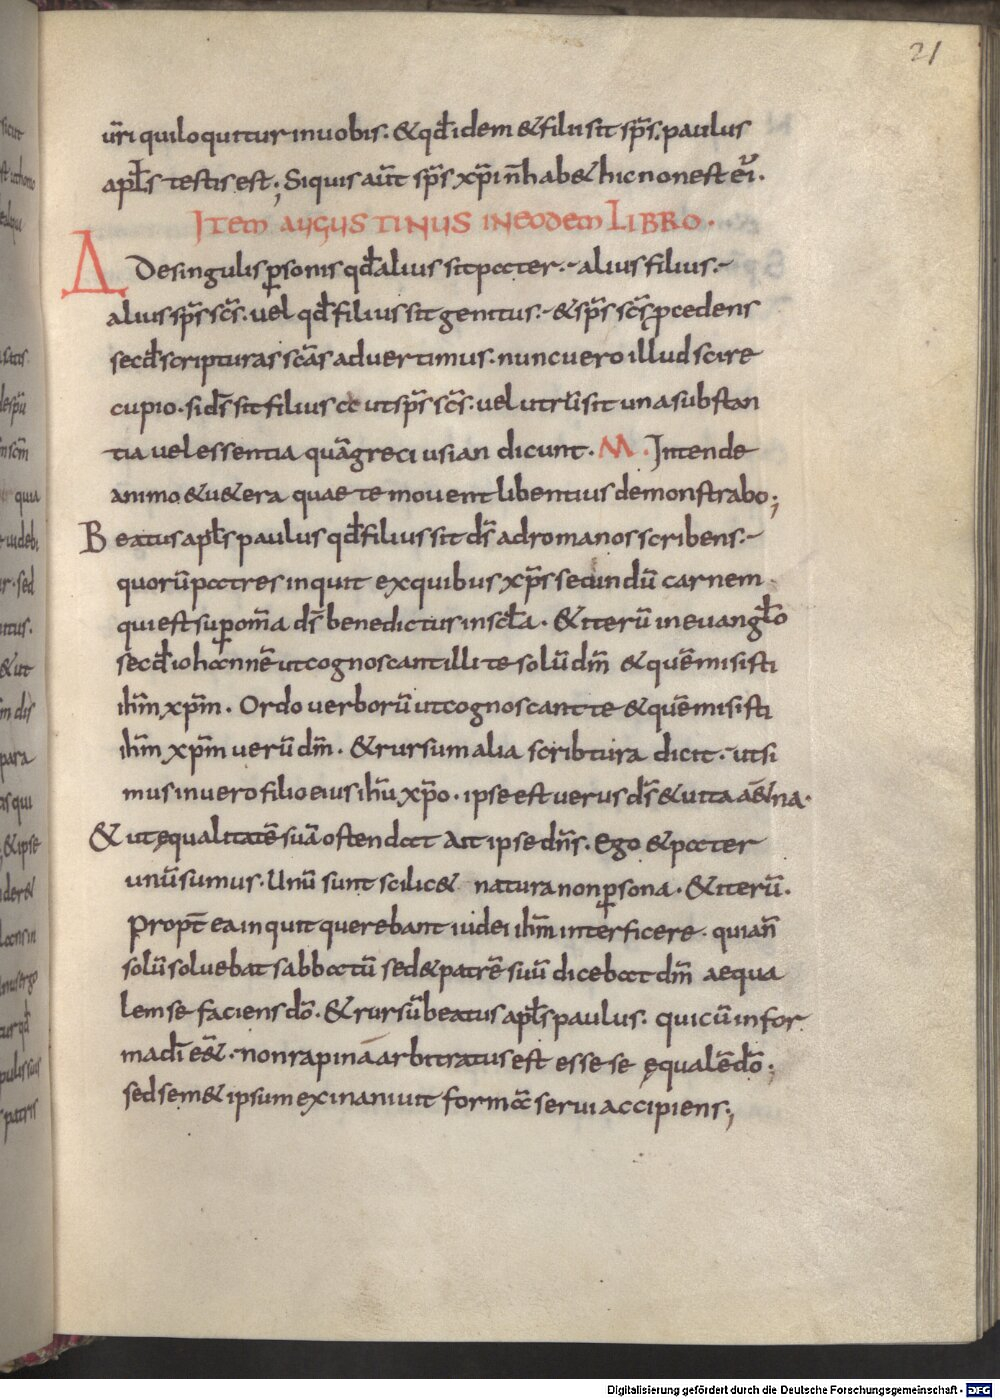 21
ur̄i qui loquitur in uobis. & qđ idem & filii sit sp̄s. paulus
apl̄s testis est; Si quis aūt sp̄s xp̄i n̄ hab& hic non est ei᷒.
ITEM AUGUSTINUS IN EODEM LIBRO.
Δ De singulis ꝑsonis qđ alius sit pater.- alius filius.-
alius sp̄s sc̄s. uel qđ filius sit genitus.- & sp̄s sc̄s ꝓcedens
secđ scripturas sc̄as aduertimus. nunc uero illud scire
cupio. si d̄s sit filius ac ut sp̄s sc̄s. uel utrū sit una substan
tia uel essentia quā greci usian dicunt. M. Intende
animo & u& era quae te mouent libentius demonstrabo;
Beatus apl̄s paulus qđ filius sit d̄s ad romanos scribens.-
quorū patres inquit ex quibus xp̄s secundū carnem.
qui est suꝑ om̄a d̄s benedictus in scl̄a. & iterū in euangl̄o
secđ iohannē ut cognoscant illi te solū dm̄ & quē misisti
ihm̄ xp̄m. Ordo uerborū ut cognoscant te & quē misisti
ihm̄ xp̄m uerū dm̄. & rursum alia scribtura dicit. ut si
mus in uero filio eius ihū xp̄o. ipse est uerus d̄s & uita aet̄na.
& ut ęqualitatē suā ostendat Ait ipse dn̄s. Ego & pater
unū sumus. Unū sunt scilic& natura non ꝑsona. & iterū.
Propt̄ ea inquit querebant iudei ihm̄ interficere. quia n̄
solū soluebat sabbatū sed & patrē suū dicebat dm̄ aequa
lem se faciens dō. & rursū beatus apl̄s paulus. qui cū in for
ma dī e&̄. non rapinā arbitratus est esse se ęqualē dō;
sed sem& ipsum exinaniuit formā serui accipiens;
Digitalisierung gefördert durch die Deutsche Forschungsgemeinschaft - DFG